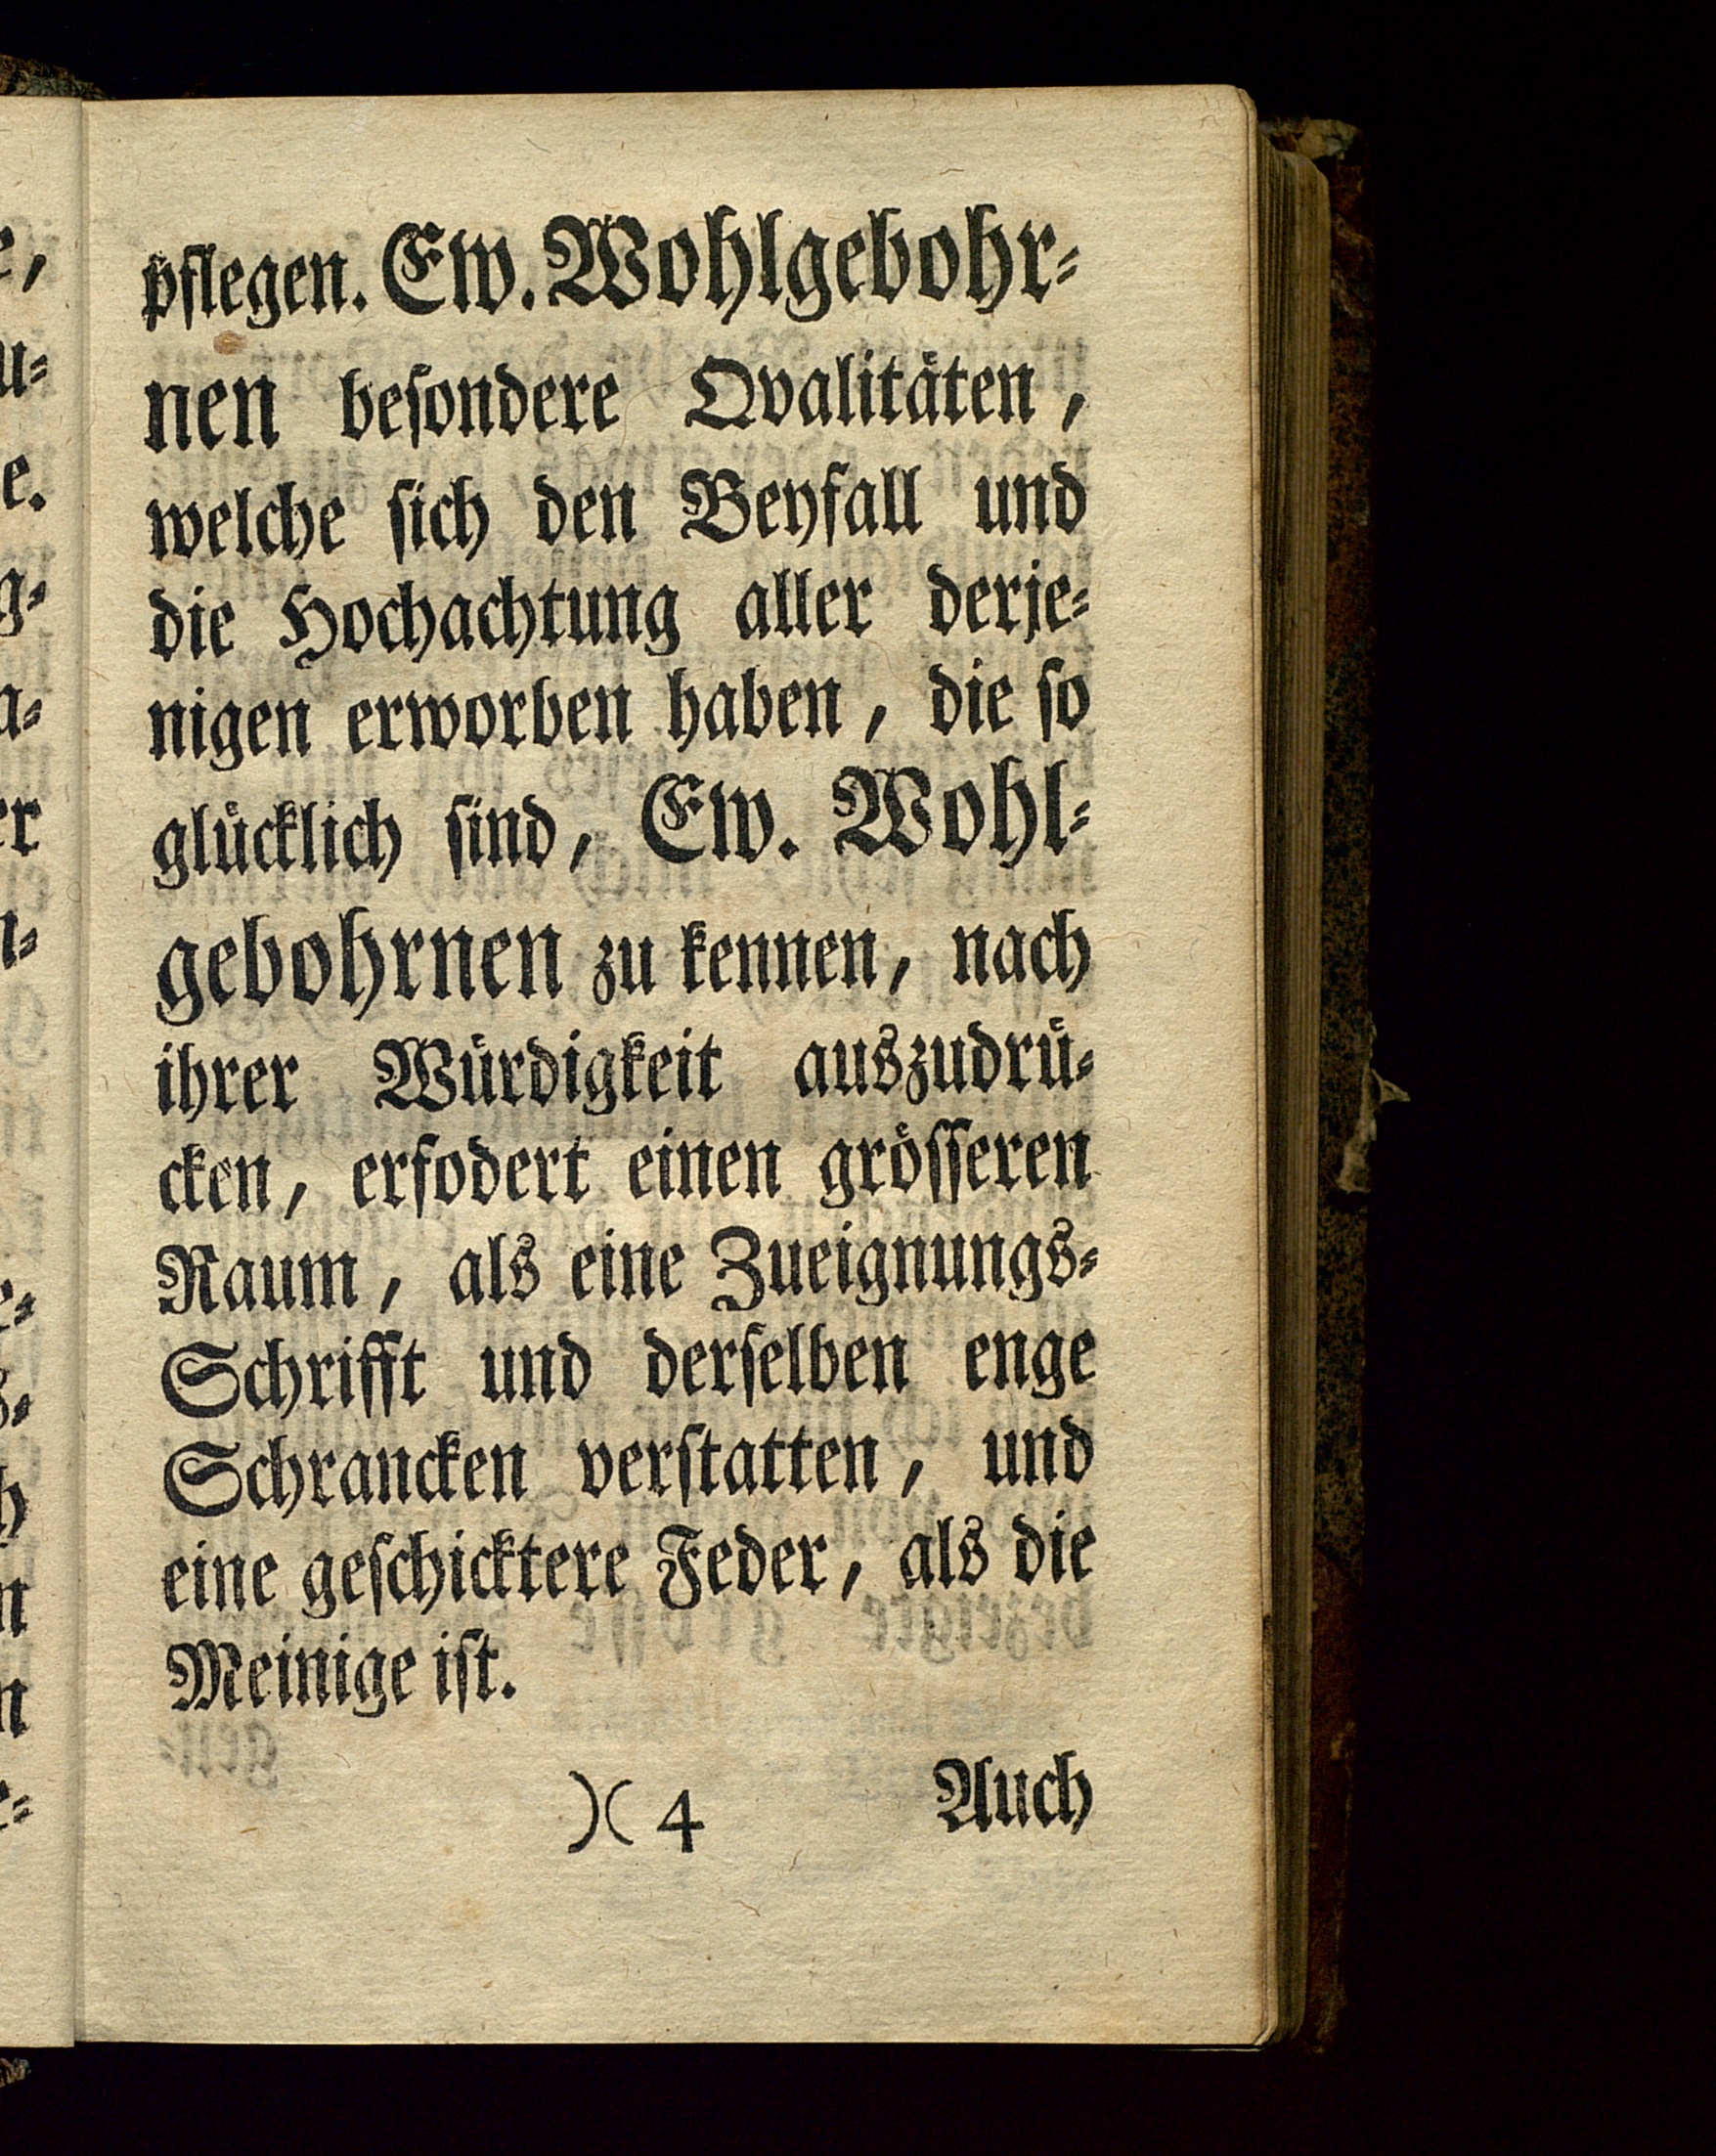 pflegen. Ew. Wohlgebohr⸗
nen besondere Qvalitäten,
welche sich den Beyfall und
die Hochachtung aller derje⸗
nigen erworben haben, die so
glücklich sind, Ew. Wohl⸗
gebohrnen zu kennen, nach
ihrer Würdigkeit auszudrü⸗
cken, erfodert einen grösseren
Raum, als eine Zueignungs⸗
Schrifft und derselben enge
Schrancken verstatten, und
eine geschicktere Feder, als die
Meinige ist.
)( 4 Auch